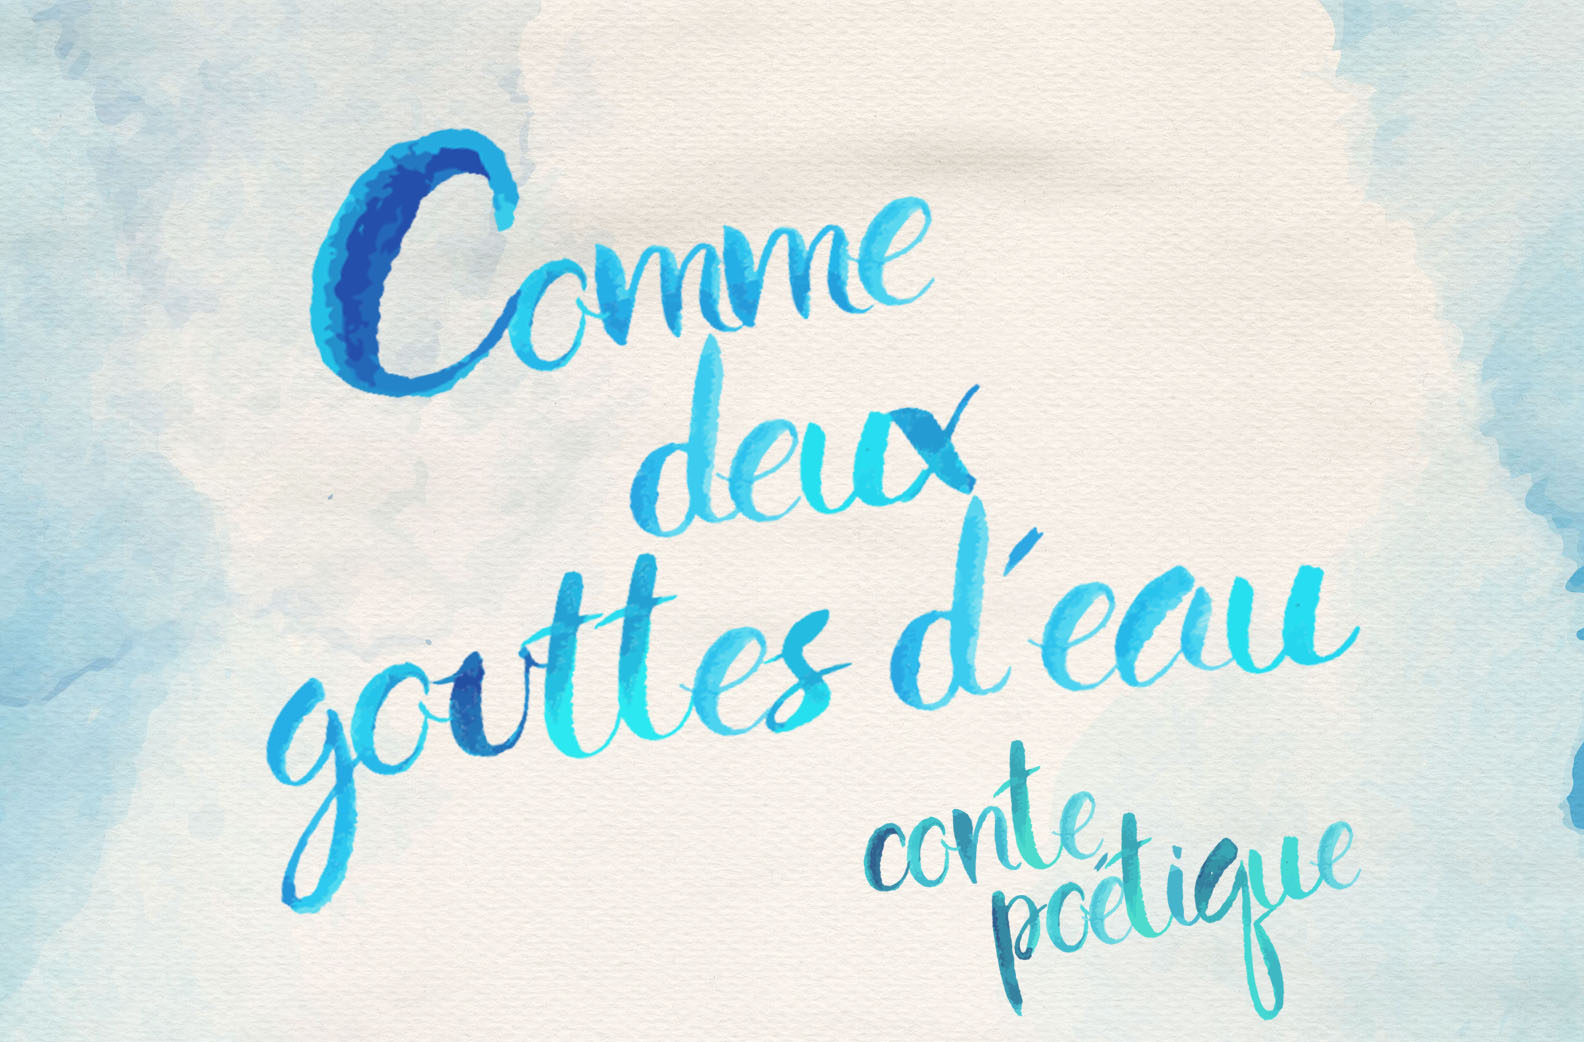 Comme
deux
gouttes d'eau
conte
poétique